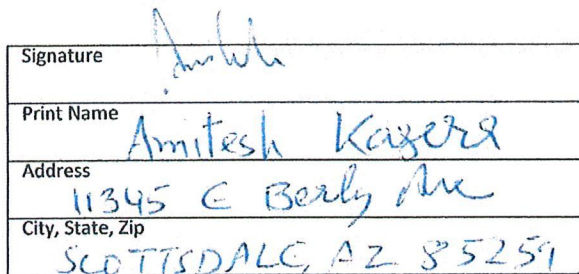 Signature
Print Name Amitesh Kasera
Address
11345 E Berly Ave
City, State, Zip
SCOTTSDALE, AZ 85259